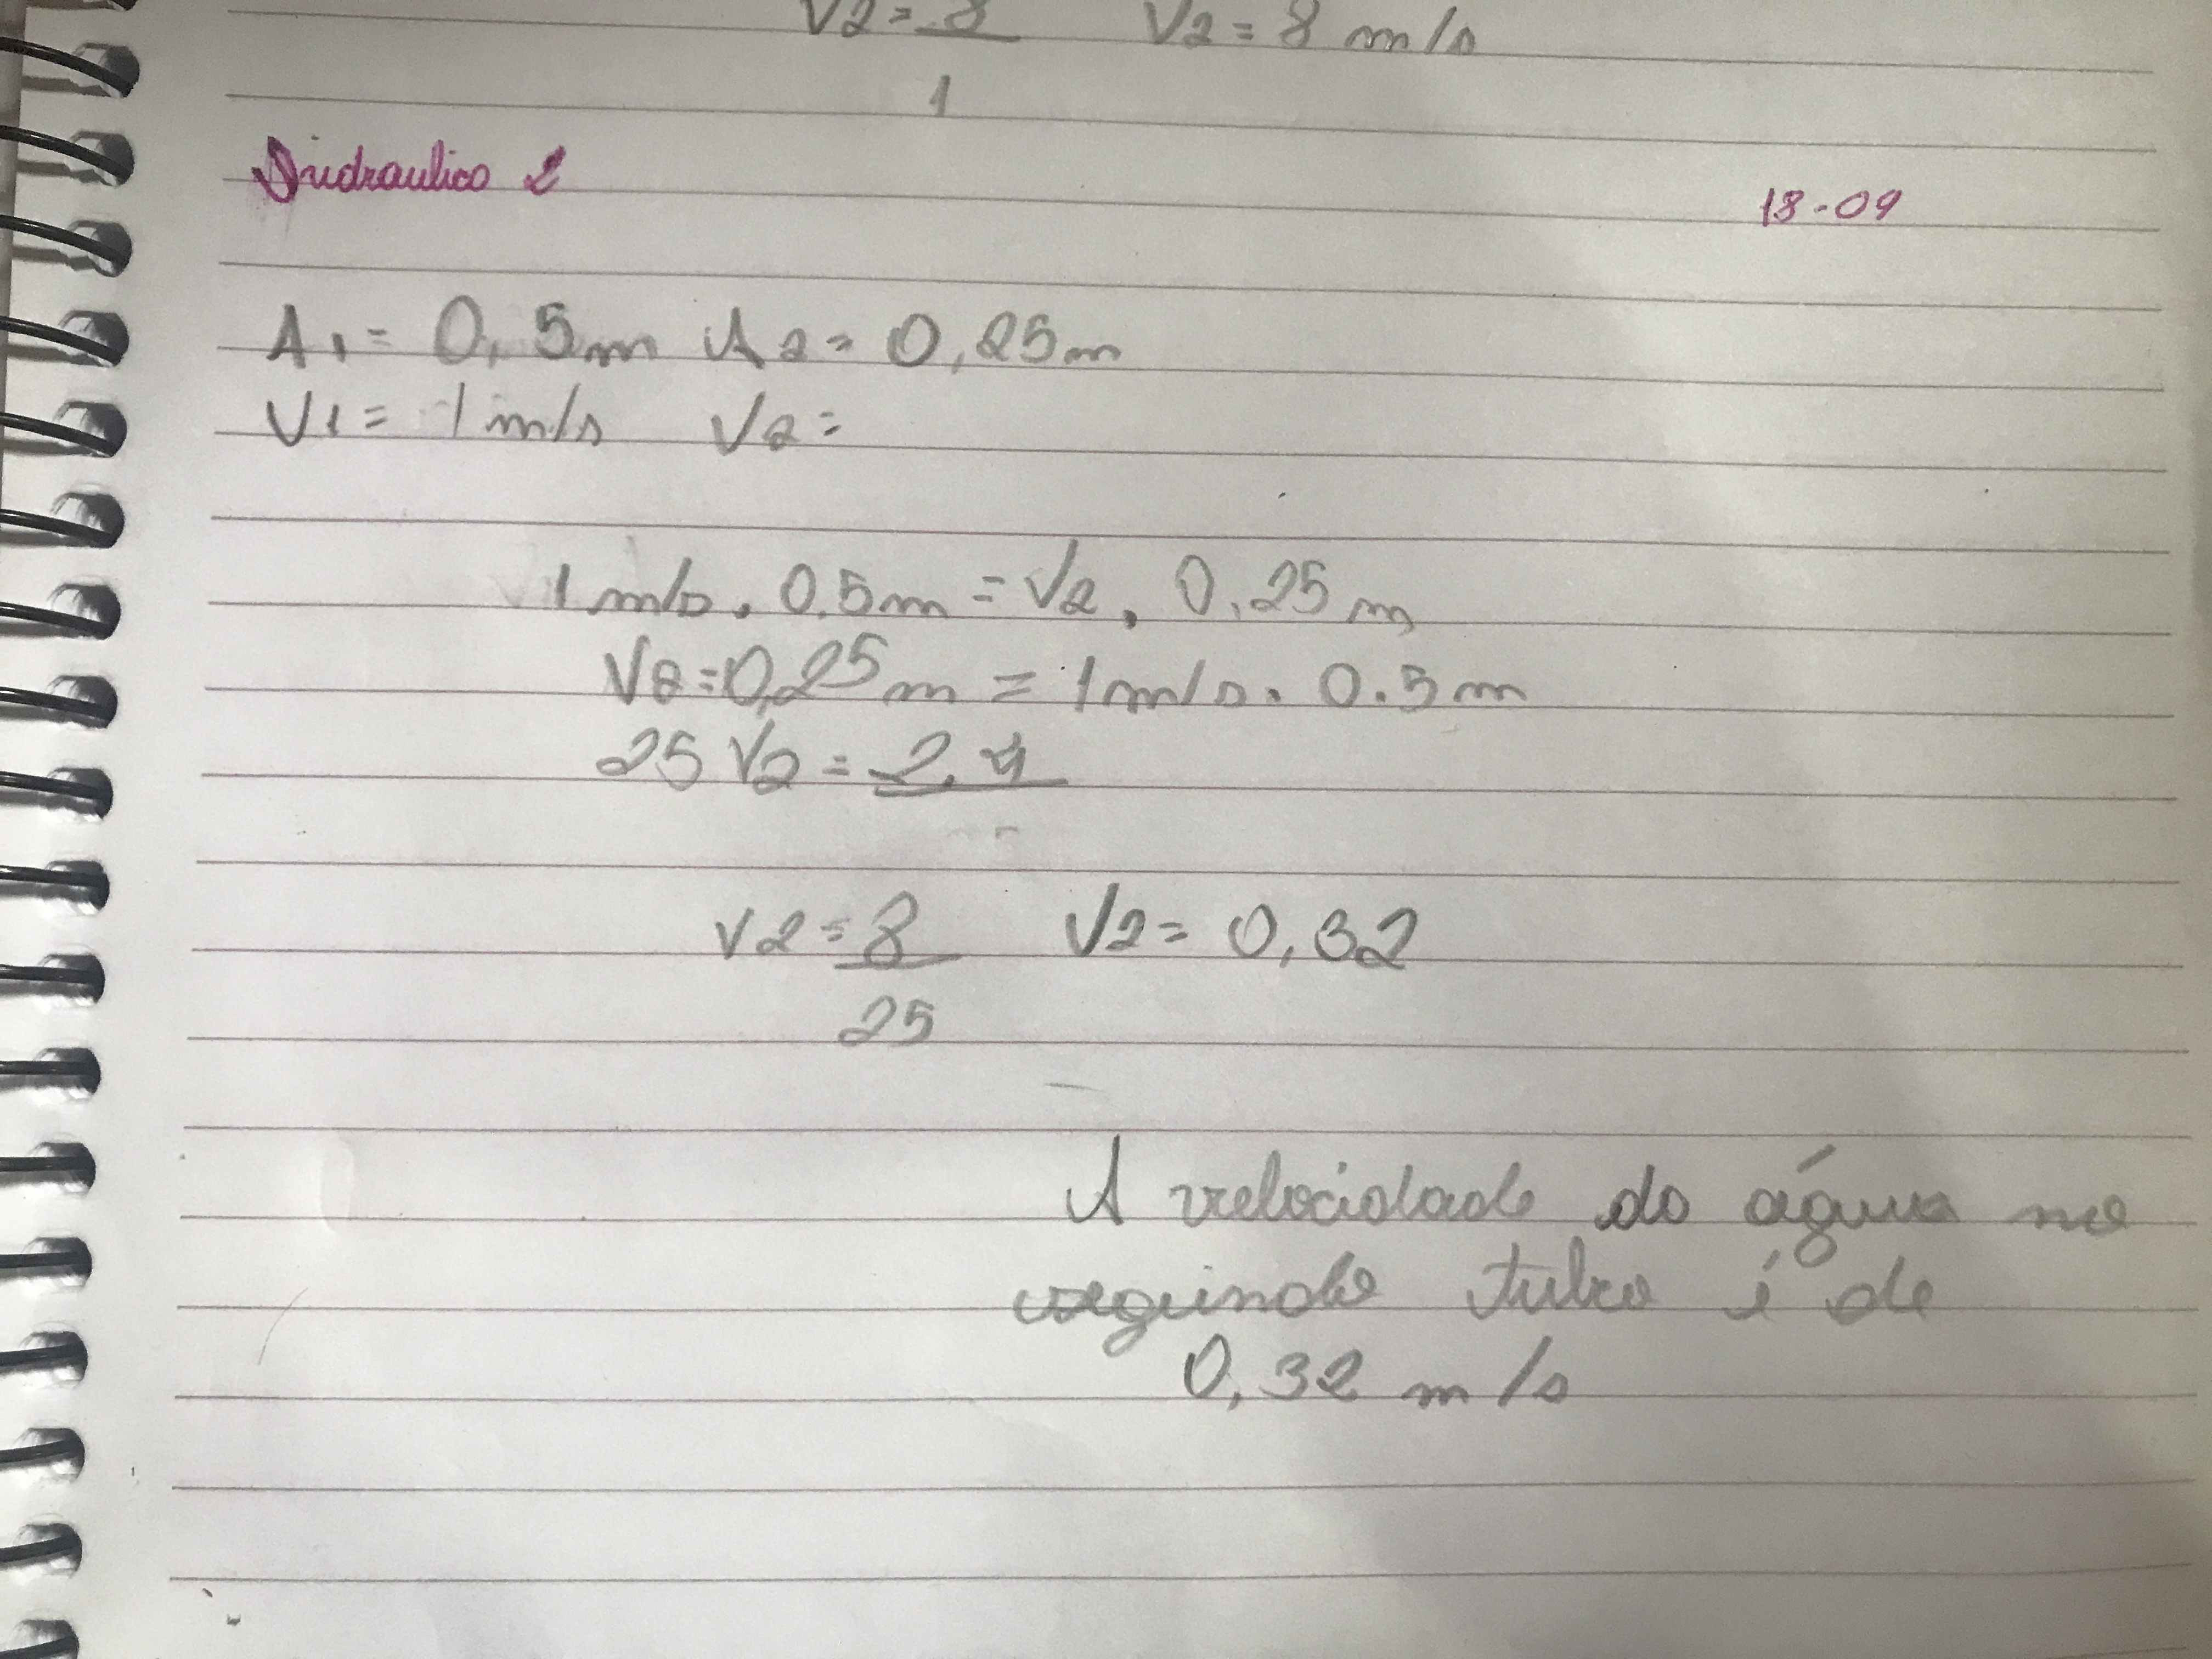 V2 = 8 V2 = 8 m/s
1
Hidraulico 2
18-09
A1 = 0,5m A2 = 0,25m
V1 = 1 m/s V2 =
1 m/s . 0.5m = V2 . 0,25 m
V2 = 0,25 m = 1 m/s . 0.5 m
25 V2 = 2.4
V2 = 8 V2 = 0,32
25
A velocidade da água no
segundo tubo é de
0,32 m/s